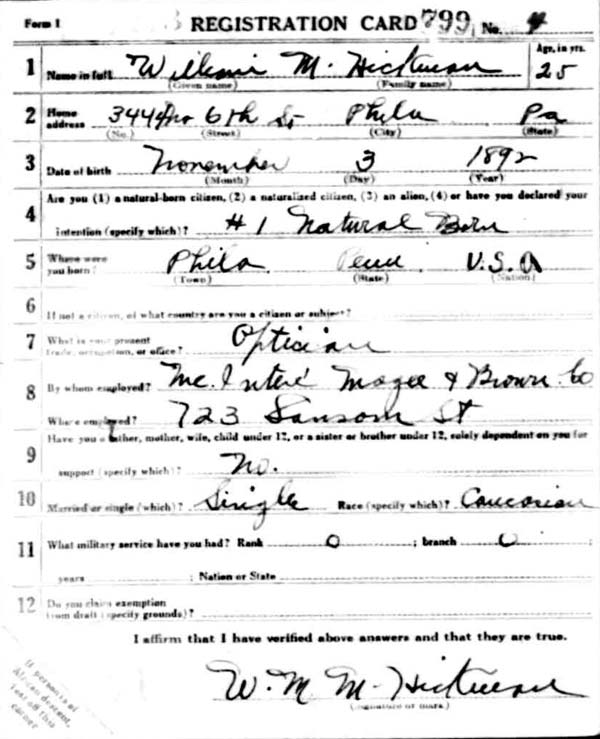 Form 1
REGISTRATION CARD 799 No. 4
Age, in yrs.
1 Name in full William M. Hickman 25
(Given name) (Family name)
2 Home address 3444 No 6th St Phila Pa
(No.) (Street) (City) (State)
3 Date of birth November 3 1892
(Month) (Day) (Year)
4 Are you (1) a natural-born citizen, (2) a naturalized citizen, (3) an alien, (4) or have you declared your
intention (specify which)? #1 Natural Born
5 Where were you born? Phila Penn. U.S.A
(Town) (State) (Nation)
6 If not a citizen, of what country are you a citizen or subject?
7 What is your present trade, occupation, or office? Optician
8 By whom employed? Magee & Brown Co
Where employed? 723 Sansom St
9 Have you a father, mother, wife, child under 12, or a sister or brother under 12, solely dependent on you for
support (specify which)? No.
10 Married or single (which)? Single Race (specify which)? Caucasian
11 What military service have you had? Rank 0 ; branch 0
years ; Nation or State
12 Do you claim exemption from draft (specify grounds)?
I affirm that I have verified above answers and that they are true.
W. M. M. Hickman
(Signature or mark)
If person is of
African descent,
tear off this
corner